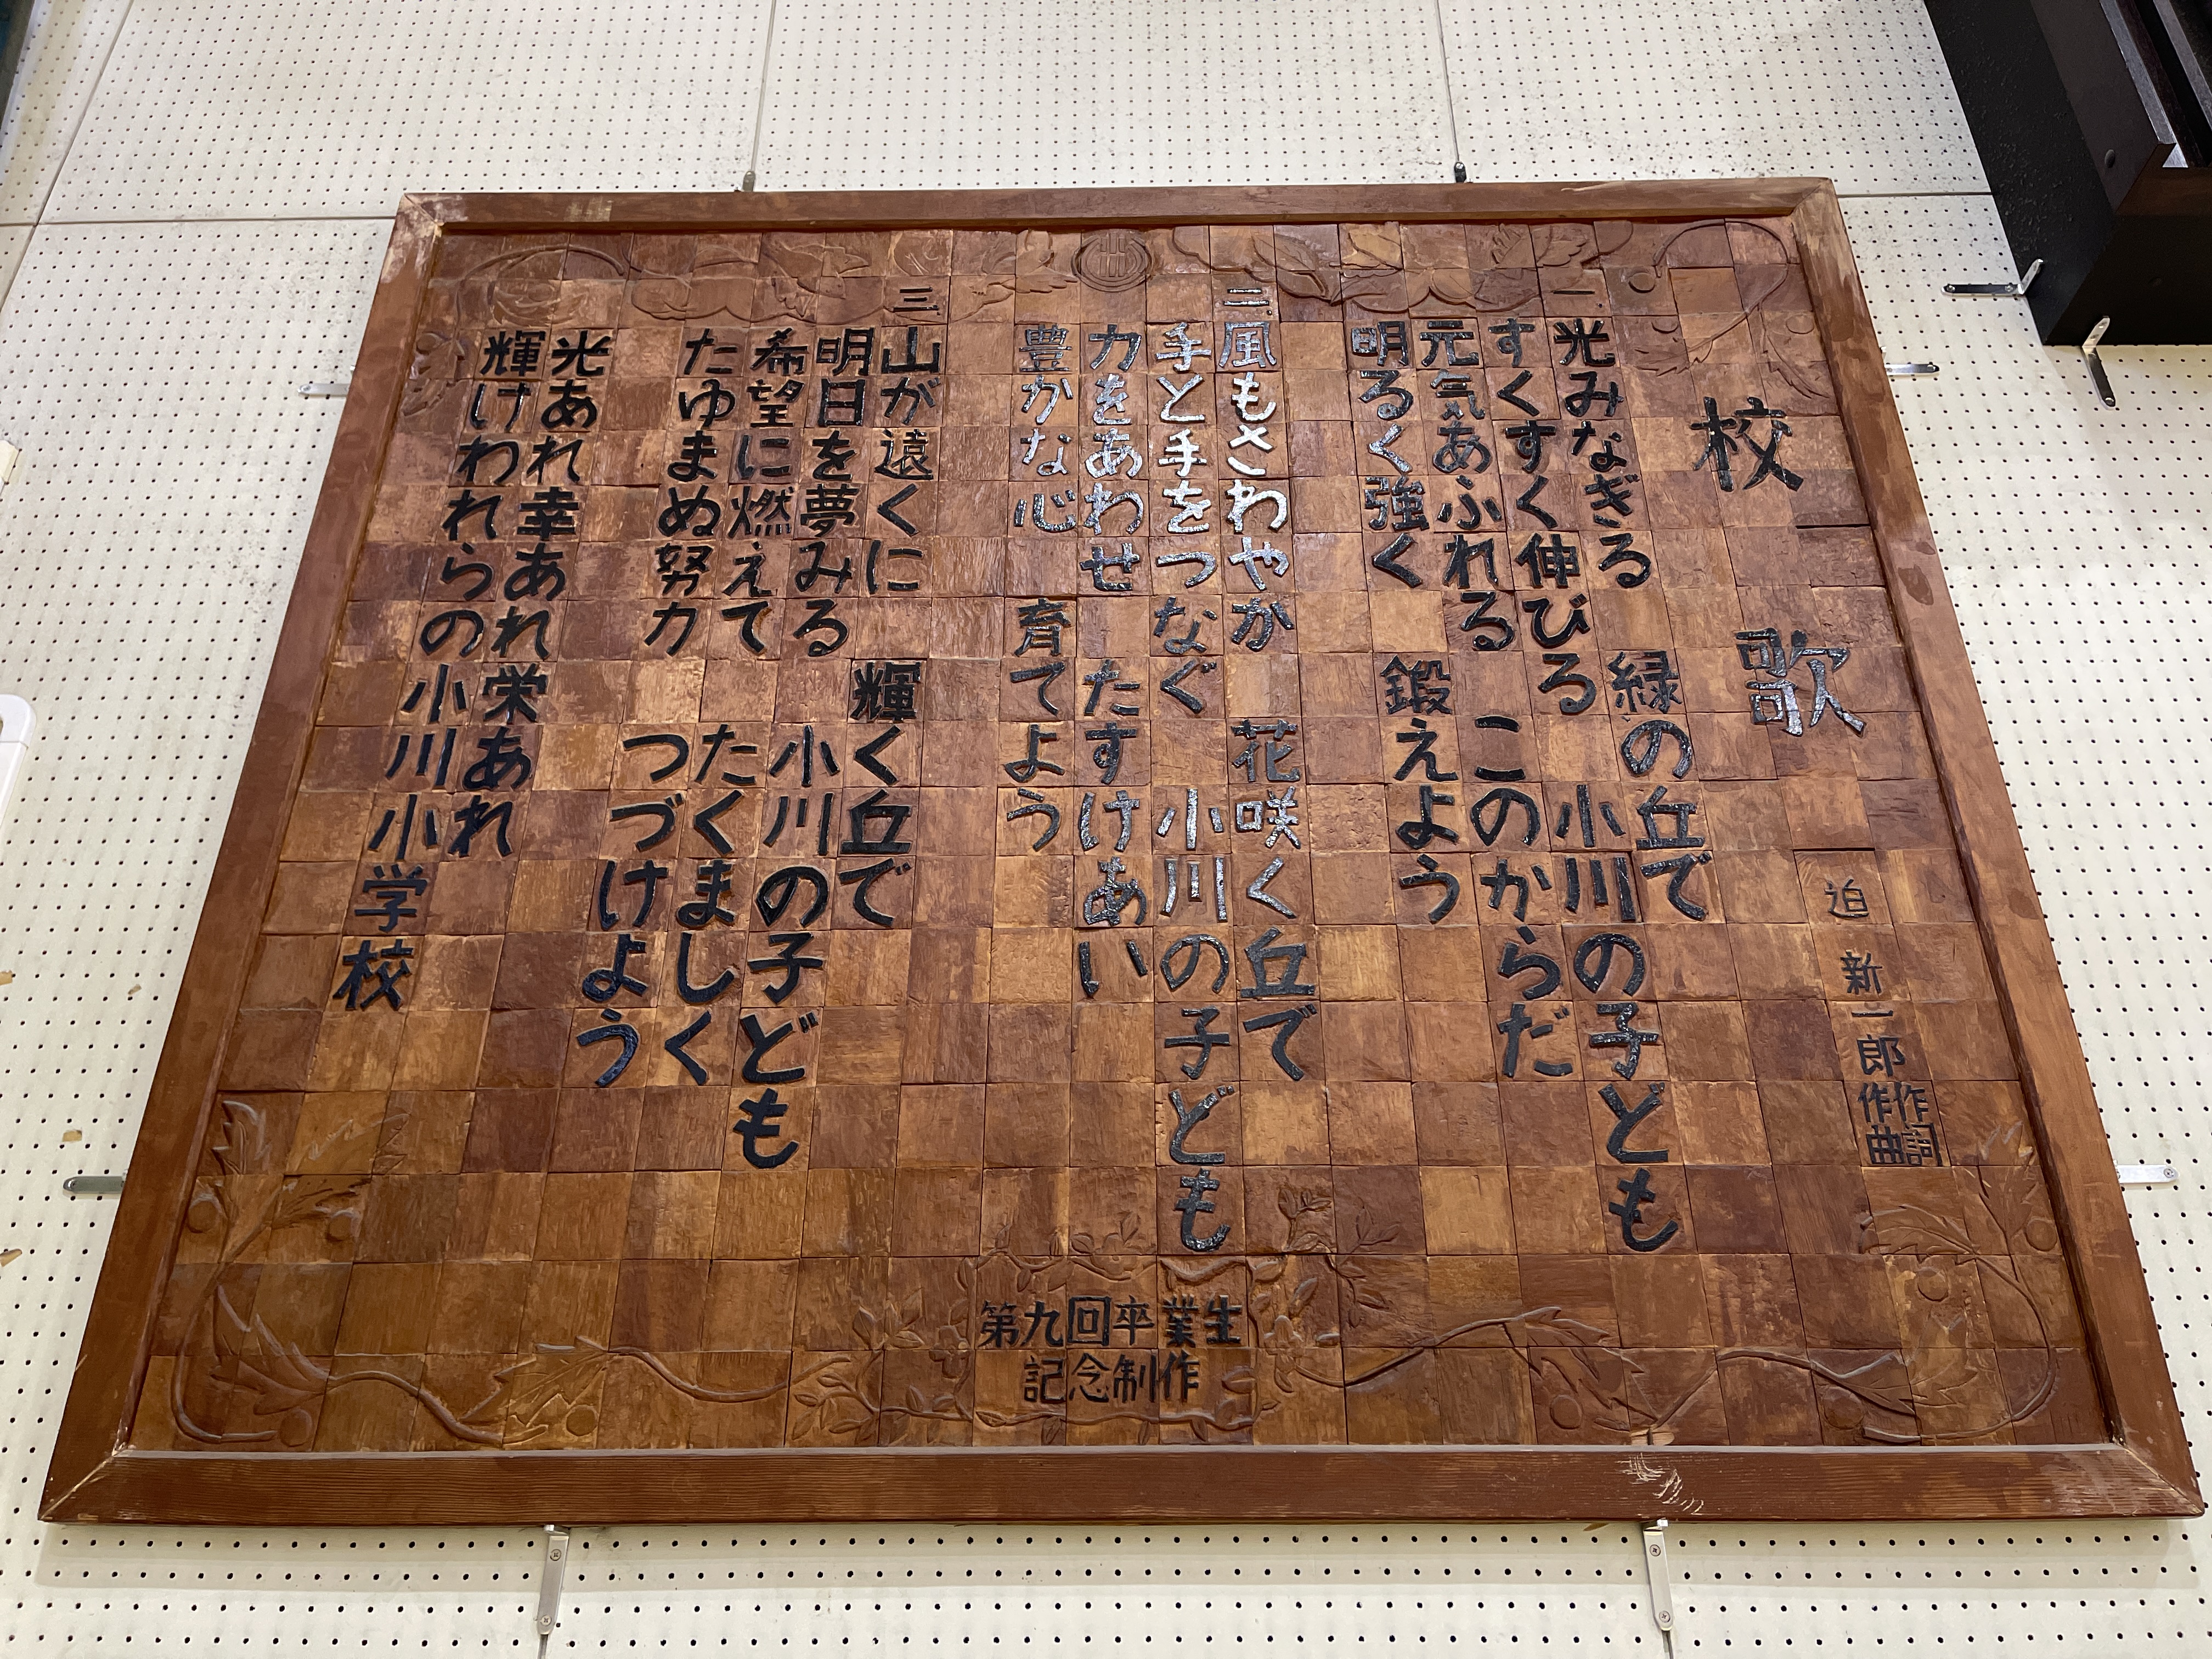 校歌
迫新一郎 作詞
作曲
一、光みなぎる 緑の丘で
すくすく伸びる 小川の子ども
元気あふれる このからだ
明るく強く 鍛えよう
二、風もさわやか 花咲く丘で
手と手をつなぐ 小川の子ども
力をあわせ たすけあい
豊かな心 育てよう
三、山が遠くに 輝く丘で
明日を夢みる 小川の子ども
希望に燃えて たくましく
たゆまぬ努力 つづけよう
光あれ幸あれ栄あれ
輝けわれらの小川小学校
第九回卒業生
記念制作